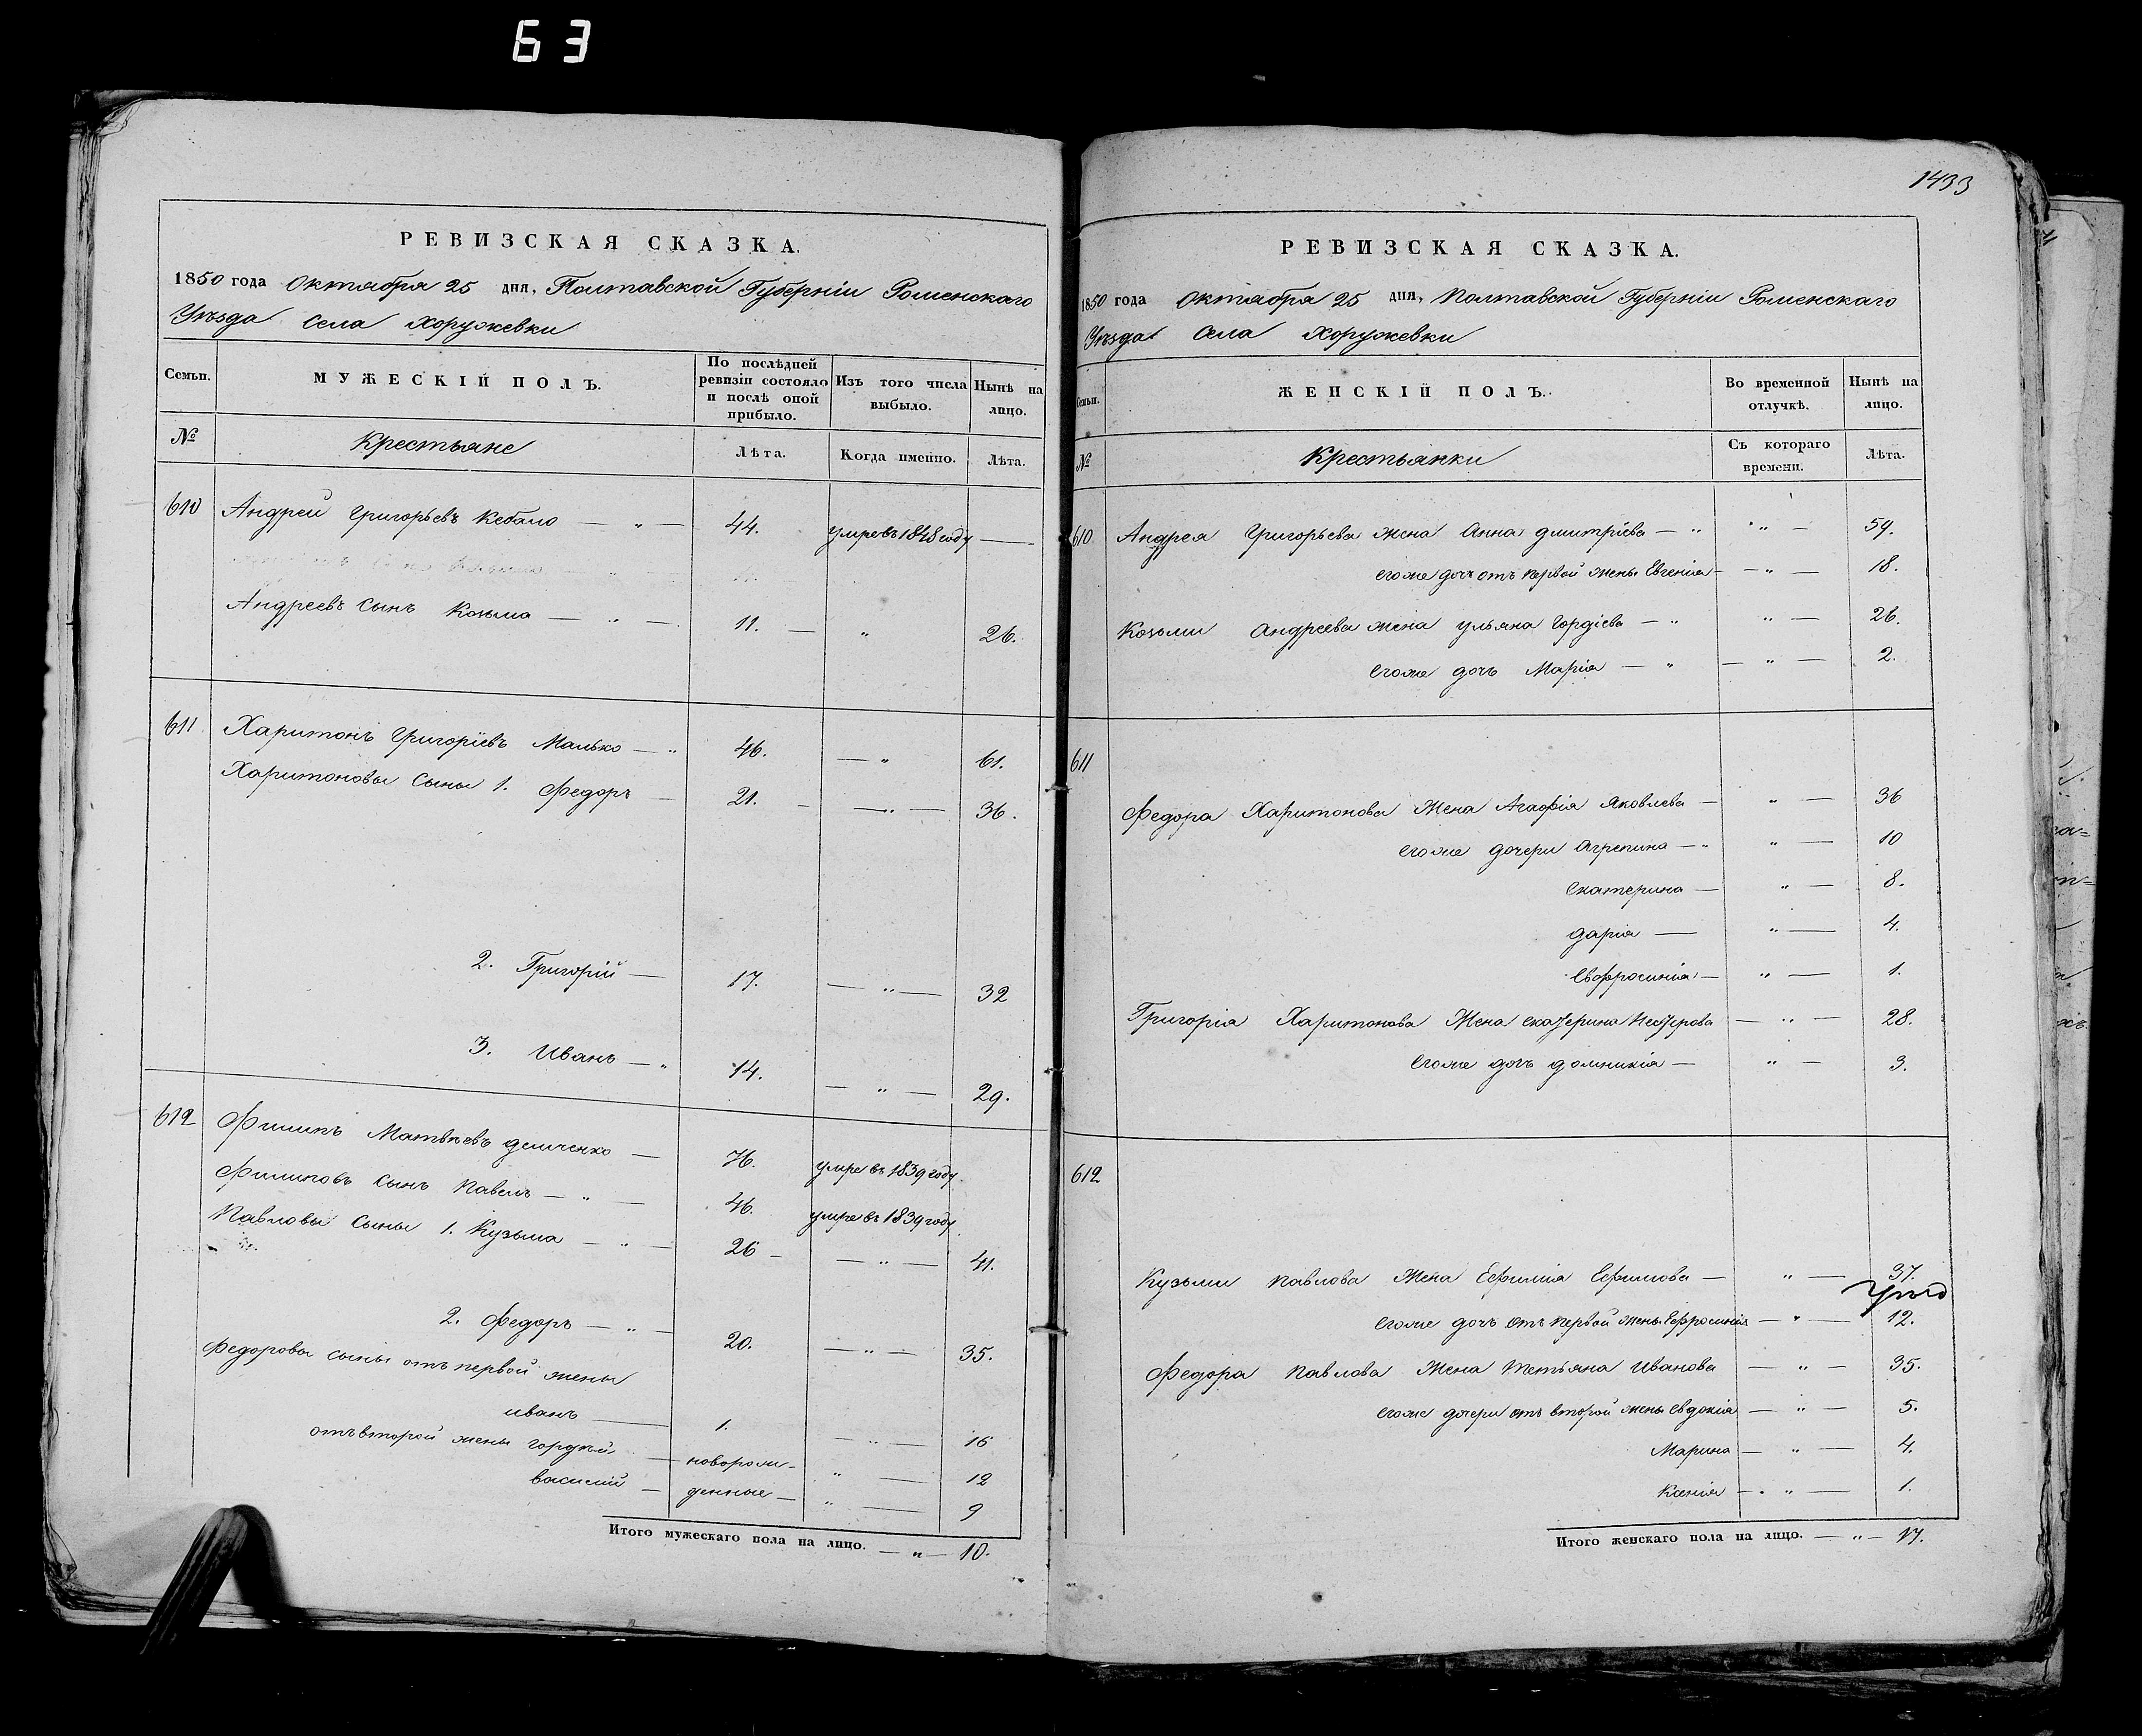 63
РЕВИЗСКАЯ СКАЗКА.
1850 года Октября 25 дня, Полтавской Губерніи Роменскаго
Уѣзда Села Хоружевки
Семьи. МУЖЕСКІЙ ПОЛЪ. По послѣдней ревизіи состояло и послѣ оной прибыло. Изъ того числа выбыло. Нынѣ на лицо.
№ Крестьяне Лѣта. Когда именно. Лѣта.
610 Андрей Григорьевъ Кебало — „ — 44. умре въ 1848 году —
Андреевъ Сынъ Козьма — „ — 11. — „ 26.
611 Харитонъ Григоріевъ Малько — „ 46. — „ 61.
Харитоновы Сыны 1. Федоръ — 21. — — „ — 36.
2. Григорій — 17. — „ — 32
3. Иванъ — „ 14. — „ — 29.
612 Филипъ Матвѣевъ демченко — 76. умре въ 1839 году.
Филиповъ Сынъ Павелъ — „ — 46. умре въ 1839 году.
Павловы Сыны 1. Кузьма — „ — 26 — — „ — 41.
2. Федоръ — „ — 20. — „ — 35.
Федоровы сыны отъ первой жены
иванъ — 1. — „ — 16
отъ второй жены гордѣй — новорож- „ — 12
василій — денные — „ — 9
Итого мужескаго пола на лицо. — „ — 10.
1433
РЕВИЗСКАЯ СКАЗКА.
1850 года Октября 25 дня, Полтавской Губерніи Роменскаго
Уѣзда Села Хоружевки
Семьи. ЖЕНСКІЙ ПОЛЪ. Во временной отлучкѣ. Нынѣ на лицо.
№ Крестьянки Съ котораго времени. Лѣта.
610 Андрея Григорьева жена Анна дмитріева — „ „ — 59.
егоже дочь отъ первой жены Евгенія — — „ — 18.
Козьми Андреева жена ульяна Гордіева — „ „ — 26.
егоже дочь Марія — „ — „ — 2.
611
Федора Харитонова Жена Агафія яковлева — „ — 36
егоже дочери Агрепина — „ „ — 10
екатерина — „ — 8.
дарія — „ — 4.
евфросинія — „ — 1.
Григорія Харитонова Жена екатерина Нестерова — „ — 28.
егоже дочь домникія — „ — 3.
612
Кузьми Павлова Жена Ефимія Ефимова — „ — 37.
егоже дочь отъ первой жены Ефросинія — „ — 12.
Федора Павлова Жена Тетьяна Иванова — „ — 35.
егоже дочери отъ второй жены евдокія — „ — 5.
Марина — „ — 4.
Ксенія — „ — 1.
Итого женскаго пола на лицо. — „ — 17.